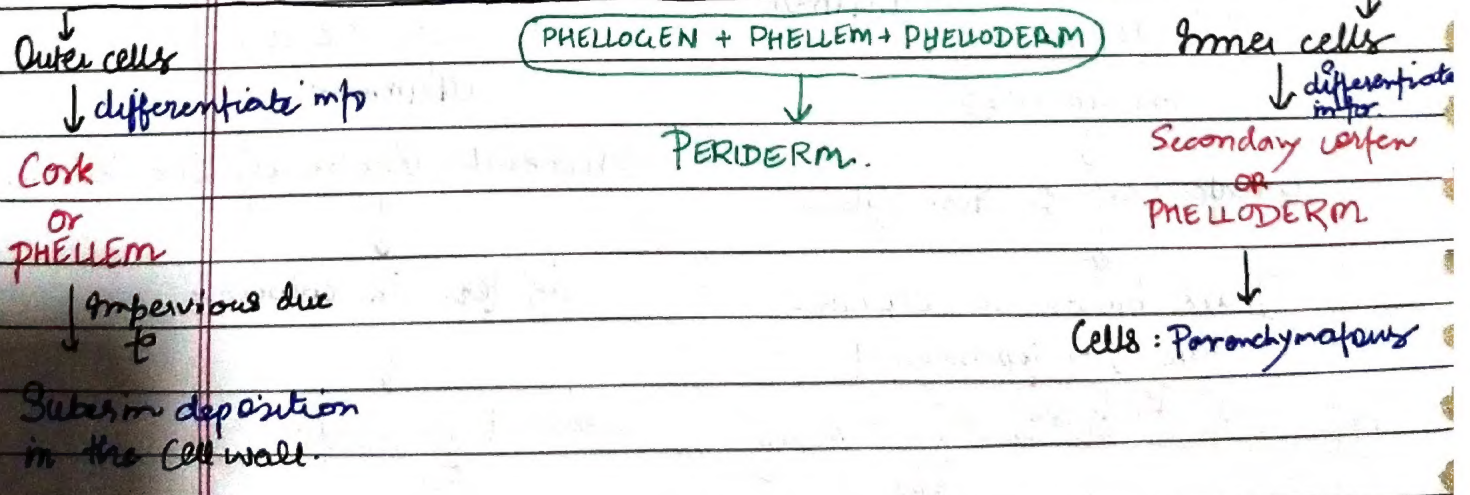 Outer cells
differentiate into
Cork
or
PHELLEM
Impervious due
to
Suberin deposition
in the Cell wall.
PHELLOGEN + PHELLEM + PHELLODERM
PERIDERM.
Inner cells
differentiate
into.
Secondary cortex
OR
PHELLODERM
Cells : Parenchymatous